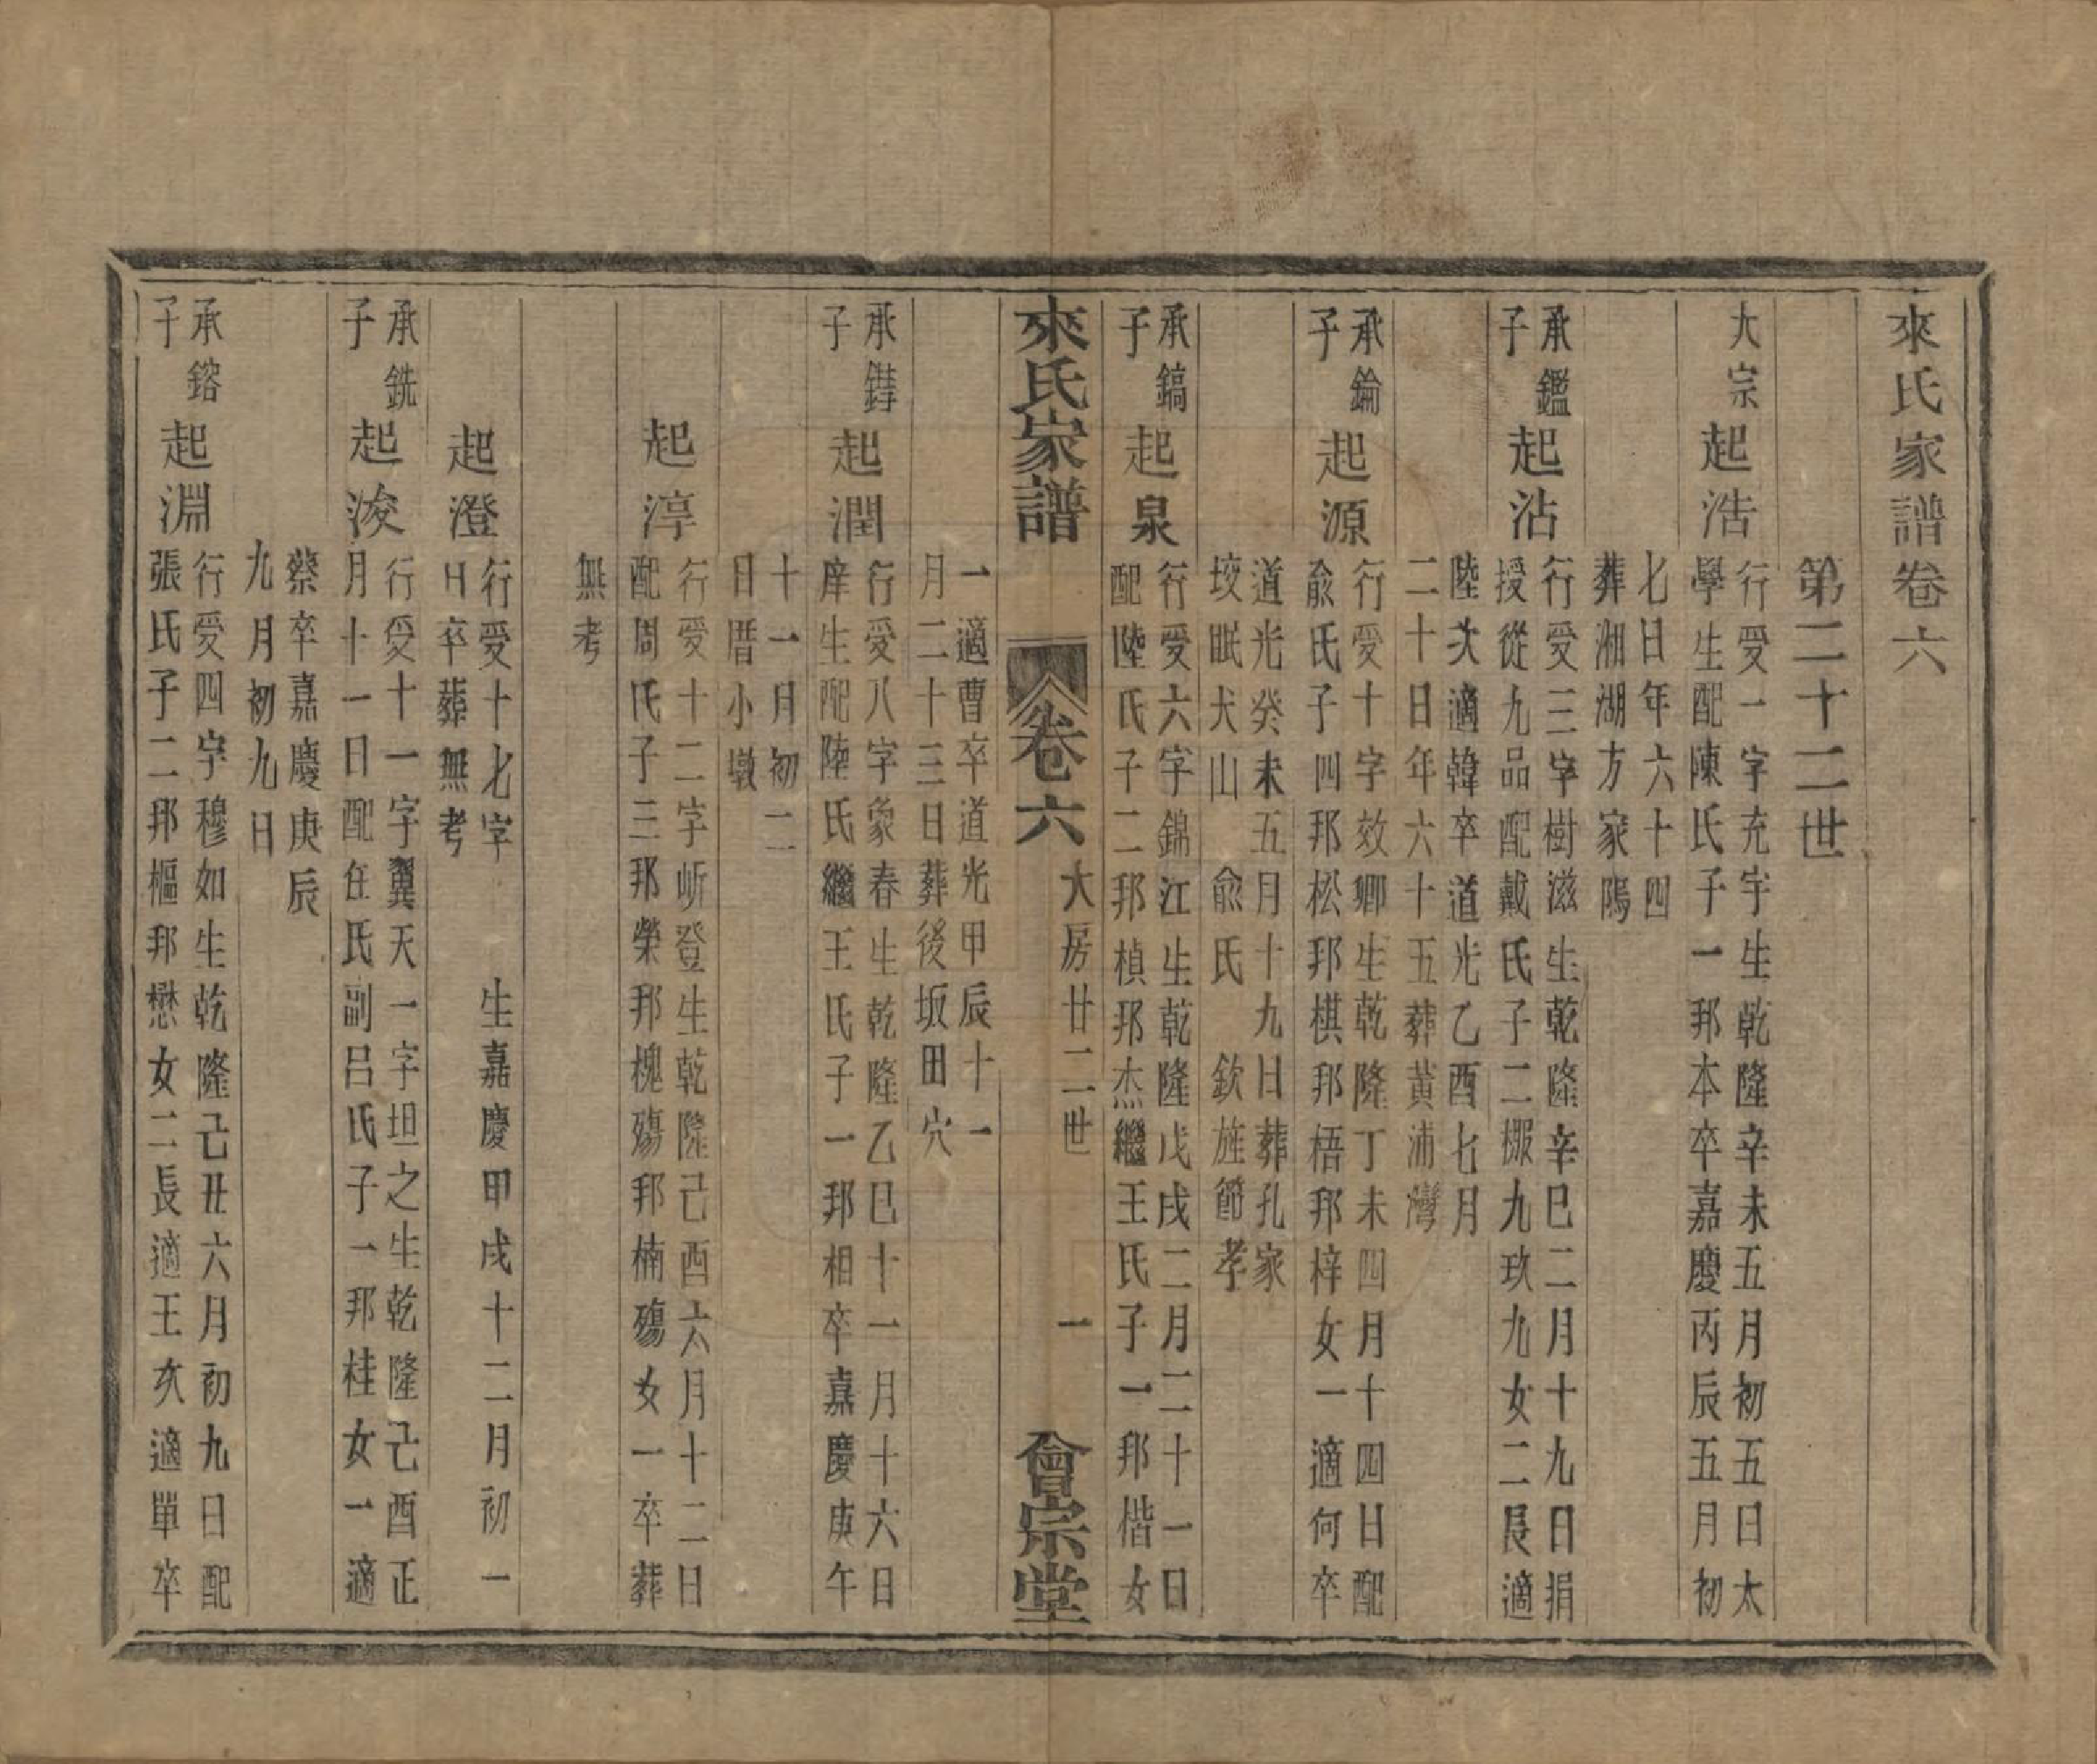 來氏家譜卷六
第二十二世
大宗
起浩
行受一字充宇生乾隆辛未五月初五日太
學生配陳氏子一邦本卒嘉慶丙辰五月初
七日年六十四
葬湘湖方家隖
承鑑
子
起沾
行受三字樹滋生乾隆辛巳二月十九日捐
授從九品配戴氏子二㮛九玖九女二長適
陸次適韓卒道光乙酉七月
二十日年六十五葬黃浦灣
承錀
子
起源
行受十字效卿生乾隆丁未四月十四日配
兪氏子四邦松邦棋邦梧邦梓女一適何卒
道光癸未五月十九日葬孔家
埈眠犬山 兪氏 欽旌節孝
承鎬
子
起泉
行受六字錦江生乾隆戊戌二月二十一日
配陸氏子二邦楨邦杰繼王氏子一邦楷女
來氏家譜 卷六 大房廿二世 一 會宗堂
一適曹卒道光甲辰十一
月二十三日葬後坂田穴
承鑄
子
起潤
行受八字象春生乾隆乙巳十一月十六日
庠生配陸氏繼王氏子一邦相卒嘉慶庚午
十一月初二
日厝小墩
起淳
行受十二字昕登生乾隆己酉六月十二日
配周氏子三邦榮邦槐殤邦楠殤女一卒葬
無考
起澄
行受十七字 生嘉慶甲戌十二月初一
日卒葬無考
承銑
子
起浚
行受十一字翼天一字坦之生乾隆己酉正
月十一日配任氏副呂氏子一邦桂女一適
蔡卒嘉慶庚辰
九月初九日
承鎔
子
起淵
行受四字穆如生乾隆己丑六月初九日配
張氏子二邦樞邦懋女二長適王次適單卒